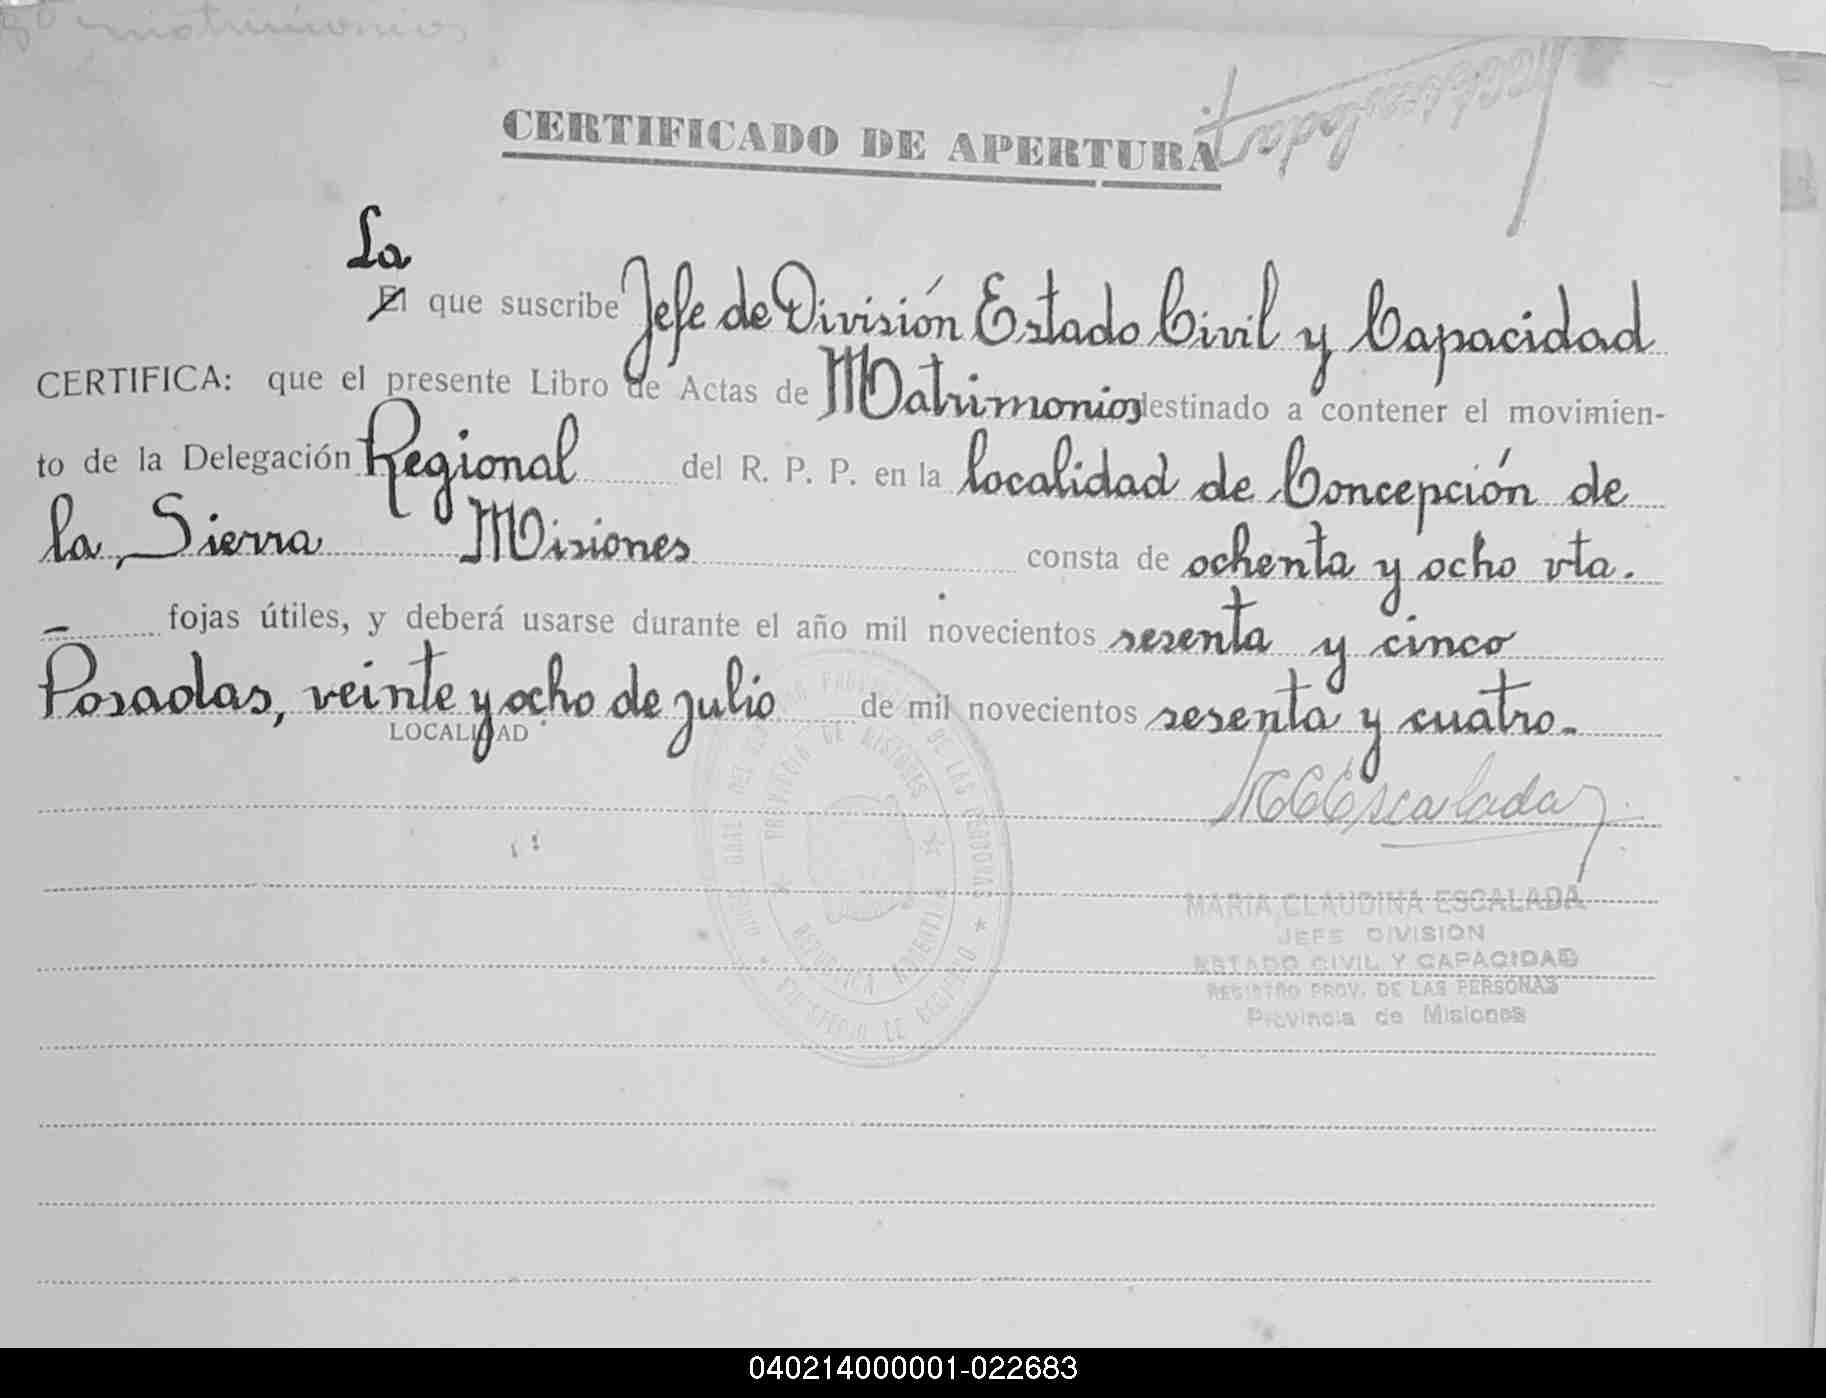 matrimonios
CERTIFICADO DE APERTURA
La
El que suscribe Jefe de División Estado Civil y Capacidad
CERTIFICA: que el presente Libro de Actas de Matrimonios destinado a contener el movimien-
to de la Delegación Regional del R. P. P. en la localidad de Concepción de
la Sierra Misiones consta de ochenta y ocho vta.
— fojas útiles, y deberá usarse durante el año mil novecientos sesenta y cinco
Posadas, veinte y ocho de julio de mil novecientos sesenta y cuatro.-
LOCALIDAD
MCEscalada
MARIA CLAUDINA ESCALADA
JEFE DIVISION
ESTADO CIVIL Y CAPACIDAD
REGISTRO PROV. DE LAS PERSONAS
Provincia de Misiones
PROVINCIA DE MISIONES
REPUBLICA ARGENTINA
DE LAS PERSONAS
040214000001-022683